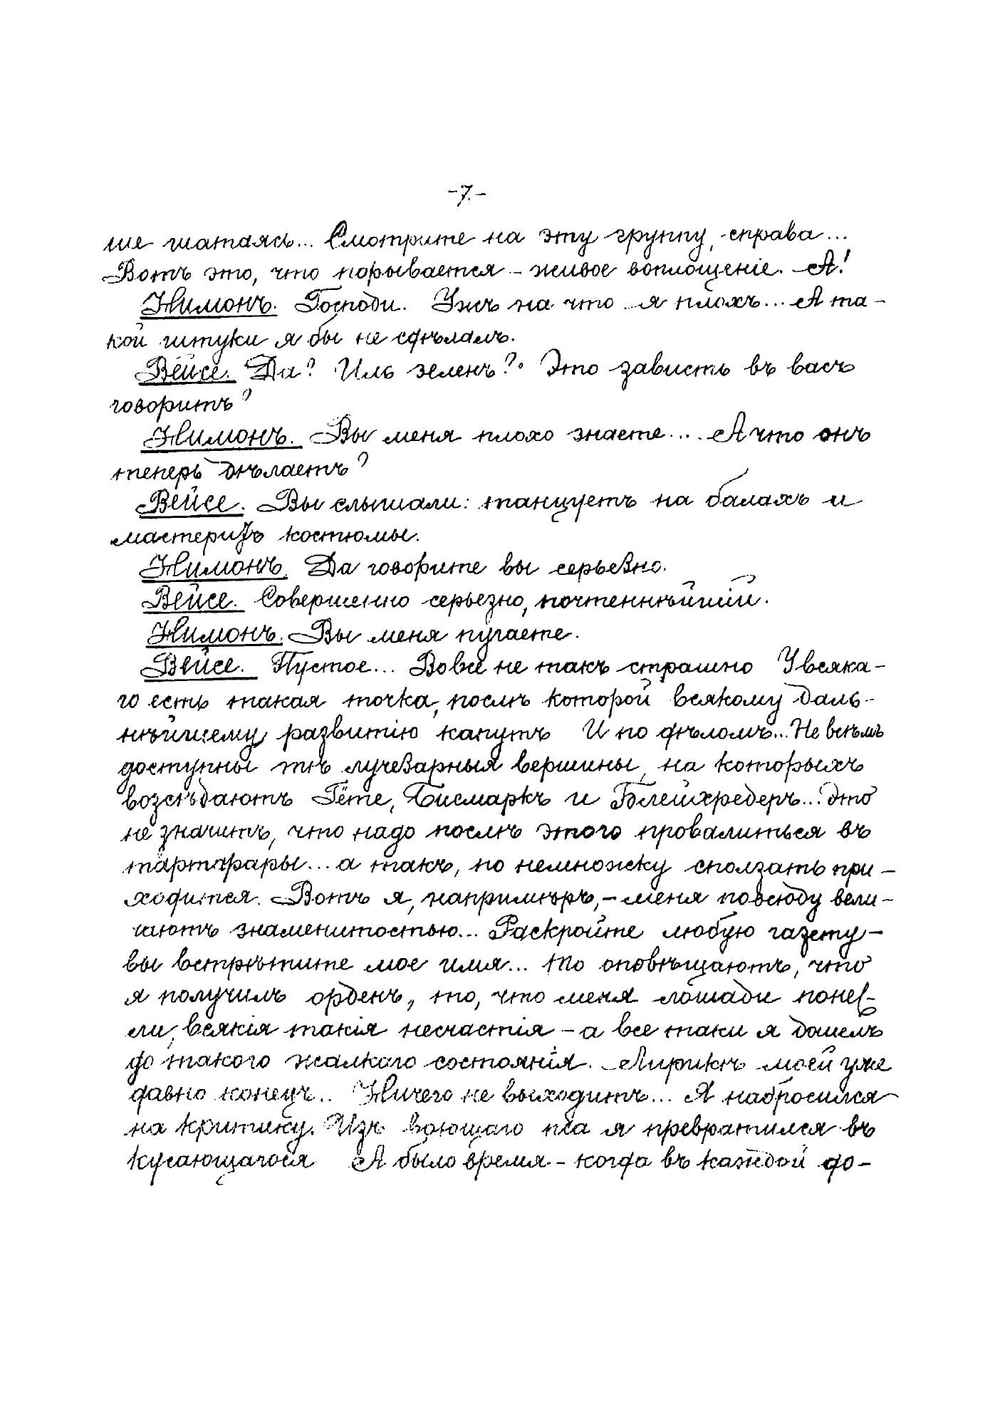 -7.-
ше шатаясь... Смотрите на эту группу, справа...
Вотъ это, что порывается - живое воплощеніе. А!
Нимонъ. Господи. Ужъ на что я плохъ... А та-
кой штуки я бы не сдѣлалъ.
Вейсе. Да? Иль зеленъ? Это зависть въ васъ
говоритъ?
Нимонъ. Вы меня плохо знаете.... А что онъ
теперь дѣлаетъ?
Вейсе. Вы слышали: танцуетъ на балахъ и
мастеритъ костюмы.
Нимонъ. Да говорите вы серьезно.
Вейсе. Совершенно серьезно, почтеннѣйшій.
Нимонъ. Вы меня пугаете.
Вейсе. Пустое... Вовсе не такъ страшно У всяка-
го есть такая точка, послѣ которой всякому даль-
нѣйшему развитію капутъ И по дѣломъ... Не всѣмъ
доступны тѣ лучезарныя вершины, на которыхъ
возсѣдаютъ Гёте, Бисмаркъ и Блейхредеръ... Это
не значитъ, что надо послѣ этого провалиться въ
тартарары... а такъ, по немножку сползать при-
ходится. Вотъ я, напримѣръ, - меня повсюду вели-
чаютъ знаменитостью... Раскройте любую газету -
вы встрѣтите мое имя... То оповѣщаютъ, что
я получилъ орденъ, то, что меня лошади понес-
ли, всякія такія несчастія - а все таки я дошелъ
до такого жалкаго состоянія. Лирикѣ моей уже
давно конецъ.. Ничего не выходитъ... Я набросился
на критику. Изъ воющаго пса я превратился въ
кусающагося А было время - когда въ каждой до-